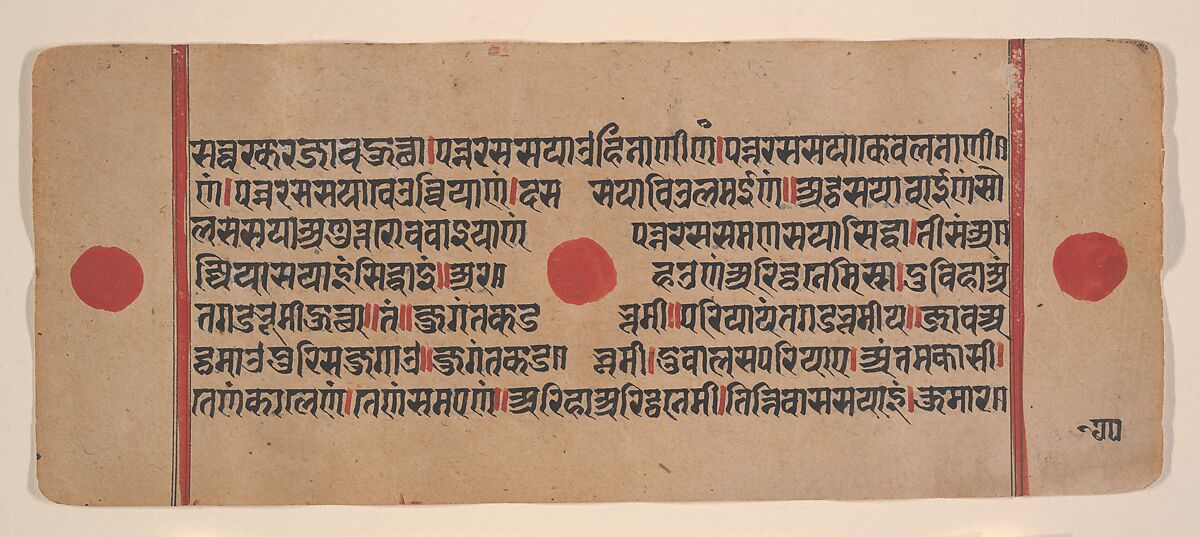 सव्वरकरजावहुत्था।पन्नरससयाउहिनाणीणं।पन्नरससयाकेवलनाणी॥
णं।पन्नरससयावेउव्वियाणं।दस सयाविउलमईणं॥अट्ठसयावाईणंसो
लससयाअणुत्तरोववाइयाणं पन्नरससमणसयासिद्धा।तीसंअ॥
ज्जियासयाइंसिद्धाइं॥अर॥ हउणंअरिट्ठनेमिस्स।दुविहाअं
तगडभूमीहुत्था॥तं॥जुगंतकड भूमी॥परियायंतगडभूमीय॥जावअ
ट्ठमाउपुरिसजुगाउ॥जुगंतकड॥ भूमी।दुवालसपरियाए।अंतमकासी।
तेणंकालेणं।तेणंसमएणं॥अरिहाअरिट्ठनेमी।तिन्निवाससयाइं।कुमार॥